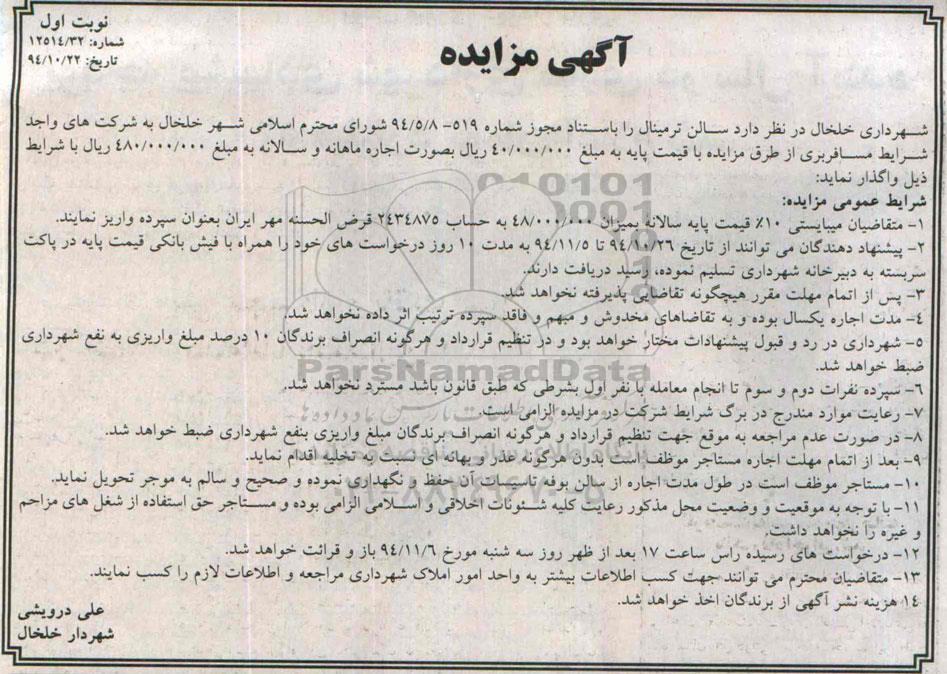 نوبت اول
شماره: ١٢٥١٤/٣٢
تاریخ: ٩٤/١٠/٢٢
آگهی مزایده
شهرداری خلخال در نظر دارد سالن ترمینال را باستناد مجوز شماره ٥١٩- ٩٤/٥/٨ شورای محترم اسلامی شهر خلخال به شرکت های واجد
شرایط مسافربری از طرق مزایده با قیمت پایه به مبلغ ٤٠/٠٠٠/٠٠٠ ریال بصورت اجاره ماهانه و سالانه به مبلغ ٤٨٠/٠٠٠/٠٠٠ ریال با شرایط
ذیل واگذار نماید:
شرایط عمومی مزایده:
١- متقاضیان میبایستی ١٠٪ قیمت پایه سالانه بمیزان ٤٨/٠٠٠/٠٠٠ به حساب ٢٤٣٤٨٧٥ قرض الحسنه مهر ایران بعنوان سپرده واریز نمایند.
٢- پیشنهاد دهندگان می توانند از تاریخ ٩٤/١٠/٢٦ تا ٩٤/١١/٥ به مدت ١٠ روز درخواست های خود را همراه با فیش بانکی قیمت پایه در پاکت
سربسته به دبیرخانه شهرداری تسلیم نموده، رسید دریافت دارند.
٣- پس از اتمام مهلت مقرر هیچگونه تقاضایی پذیرفته نخواهد شد.
٤- مدت اجاره یکسال بوده و به تقاضاهای مخدوش و مبهم و فاقد سپرده ترتیب اثر داده نخواهد شد.
٥- شهرداری در رد و قبول پیشنهادات مختار خواهد بود و در تنظیم قرارداد و هرگونه انصراف برندگان ١٠ درصد مبلغ واریزی به نفع شهرداری
ضبط خواهد شد.
ParsNamadData
٦- سپرده نفرات دوم و سوم تا انجام معامله با نفر اول بشرطی که طبق قانون باشد مسترد نخواهد شد.
٧- رعایت موارد مندرج در برگ شرایط شرکت در مزایده الزامی است.
٨- در صورت عدم مراجعه به موقع جهت تنظیم قرارداد و هرگونه انصراف برندگان مبلغ واریزی بنفع شهرداری ضبط خواهد شد.
٩- بعد از اتمام مهلت اجاره مستاجر موظف است بدون هرگونه عذر و بهانه ای نسبت به تخلیه اقدام نماید.
١٠- مستاجر موظف است در طول مدت اجاره از سالن بوفه تاسیسات آن حفظ و نگهداری نموده و صحیح و سالم به موجر تحویل نماید.
١١- با توجه به موقعیت و وضعیت محل مذکور رعایت کلیه شئونات اخلاقی و اسلامی الزامی بوده و مستاجر حق استفاده از شغل های مزاحم
و غیره را نخواهد داشت.
١٢- درخواست های رسیده راس ساعت ١٧ بعد از ظهر روز سه شنبه مورخ ٩٤/١١/٦ باز و قرائت خواهد شد.
١٣- متقاضیان محترم می توانند جهت کسب اطلاعات بیشتر به واحد امور املاک شهرداری مراجعه و اطلاعات لازم را کسب نمایند.
١٤ هزینه نشر آگهی از برندگان اخذ خواهد شد.
علی درویشی
شهردار خلخال